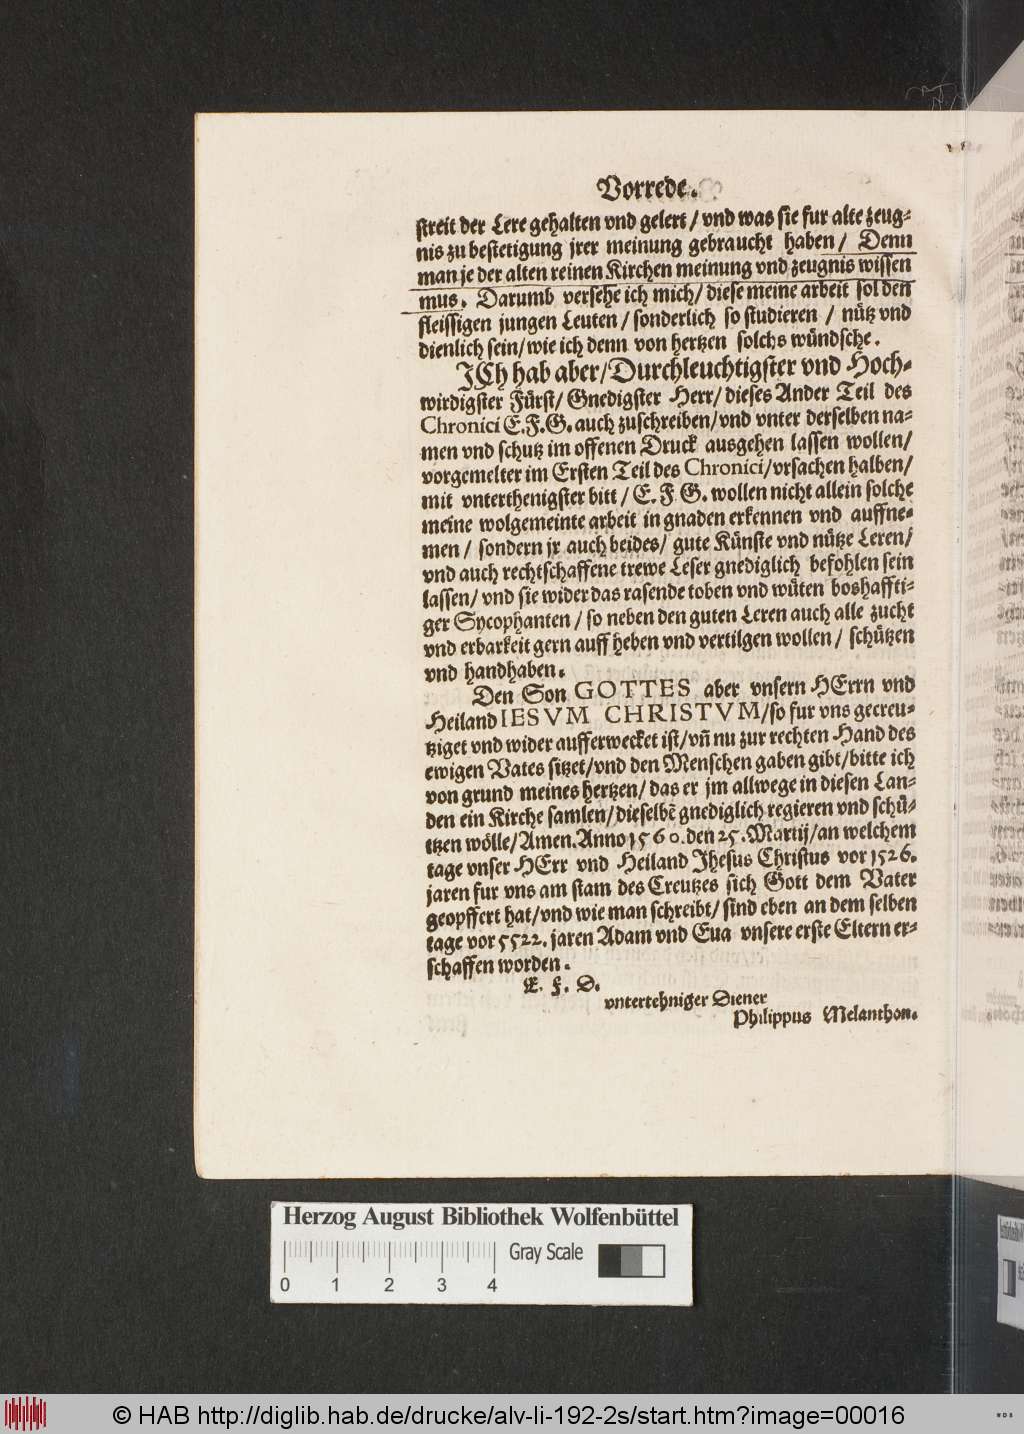 Vorrede.
streit der Lere gehalten vnd gelert / vnd was sie fur alte zeug-
nis zu bestetigung jrer meinung gebraucht haben / Denn
man je der alten reinen Kirchen meinung vnd zeugnis wissen
mus. Darumb versehe ich mich / diese meine arbeit sol den
fleissigen jungen Leuten / sonderlich so studieren / nütz vnd
dienlich sein / wie ich denn von hertzen solchs wündsche.
ICh hab aber / Durchleuchtigster vnd Hoch-
wirdigster Fürst / Gnedigster Herr / dieses Ander Teil des
Chronici E. F. G. auch zuschreiben / vnd vnter derselben na-
men vnd schutz im offenen Druck ausgehen lassen wollen /
vorgemelter im Ersten Teil des Chronici / vrsachen halben /
mit vnterthenigster bitt / E. F G. wollen nicht allein solche
meine wolgemeinte arbeit in gnaden erkennen vnd auffne-
men / sondern jr auch beides / gute Künste vnd nütze Leren /
vnd auch rechtschaffene trewe Leser gnediglich befohlen sein
lassen / vnd sie wider das rasende toben vnd wüten boshaffti-
ger Sycophanten / so neben den guten Leren auch alle zucht
vnd erbarkeit gern auff heben vnd vertilgen wollen / schützen
vnd handhaben.
Den Son GOTTES aber vnsern HErrn vnd
Heiland IESVM CHRISTVM / so fur vns gecreu-
tziget vnd wider aufferwecket ist / vn̄ nu zur rechten Hand des
ewigen Vates sitzet / vnd den Menschen gaben gibt / bitte ich
von grund meines hertzen / das er jm allwege in diesen Lan-
den ein Kirche samlen / dieselbē gnediglich regieren vnd schü-
tzen wölle / Amen. Anno 1560. den 25. Martij / an welchem
tage vnser HErr vnd Heiland Jhesus Christus vor 1526.
jaren fur vns am stam des Creutzes sich Gott dem Vater
geopffert hat / vnd wie man schreibt / sind eben an dem selben
tage vor 5522. jaren Adam vnd Eua vnsere erste Eltern er-
schaffen worden.
E. F. D.
vntertehniger Diener
Philippus Melanthon.
Herzog August Bibliothek Wolfenbüttel
Gray Scale
0 1 2 3 4
© HAB http://diglib.hab.de/drucke/alv-li-192-2s/start.htm?image=00016